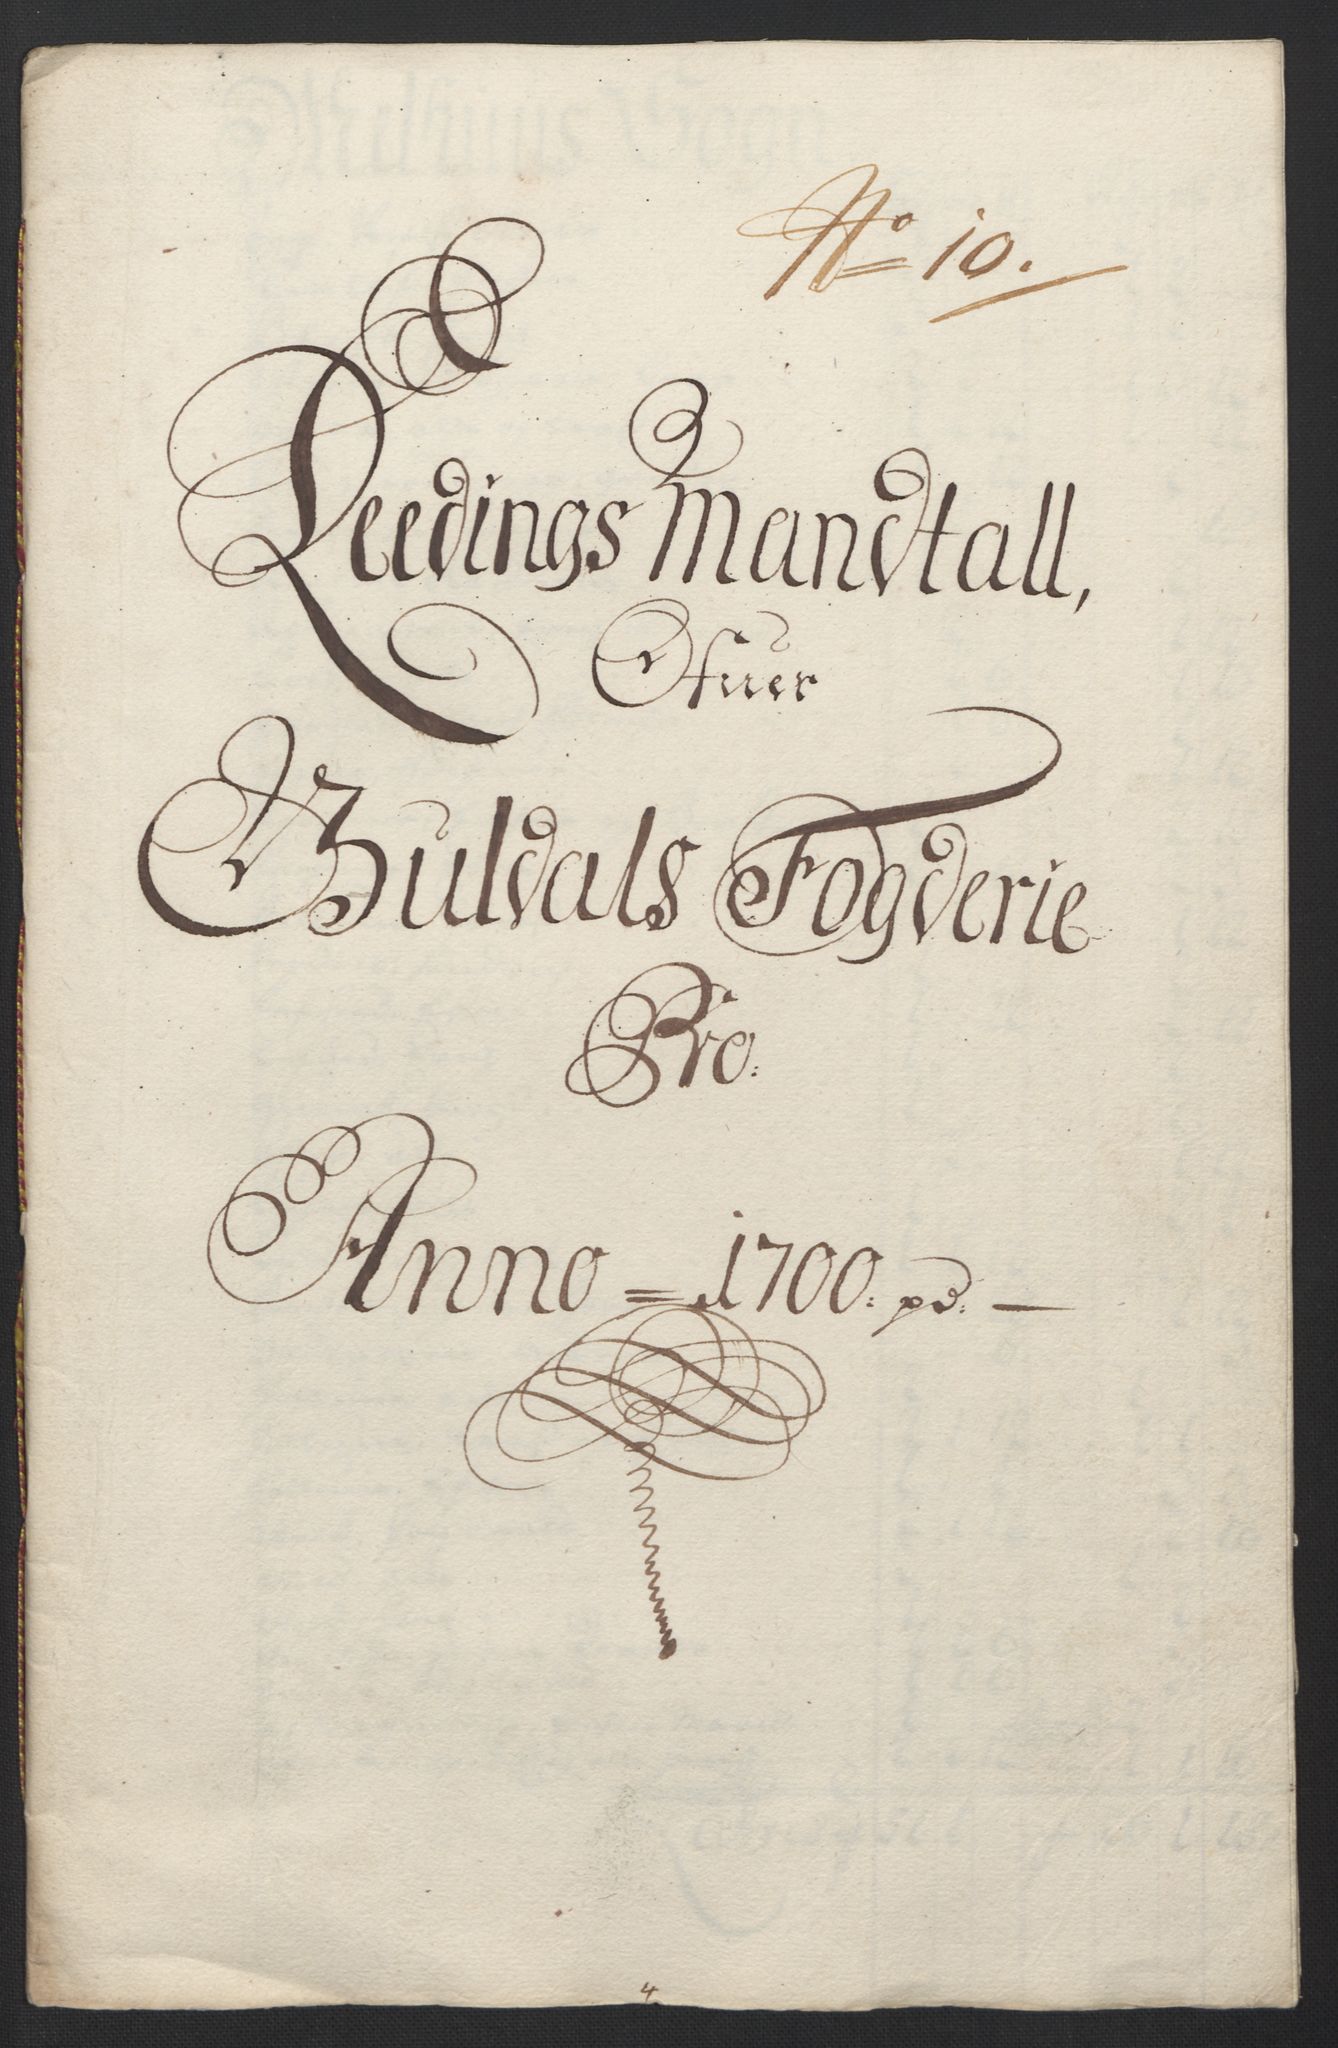 No 10.
Leedings Mandtall,
Ofuer
Guldals Fogderie
Pro.
Anno = 1700. pd. —
4